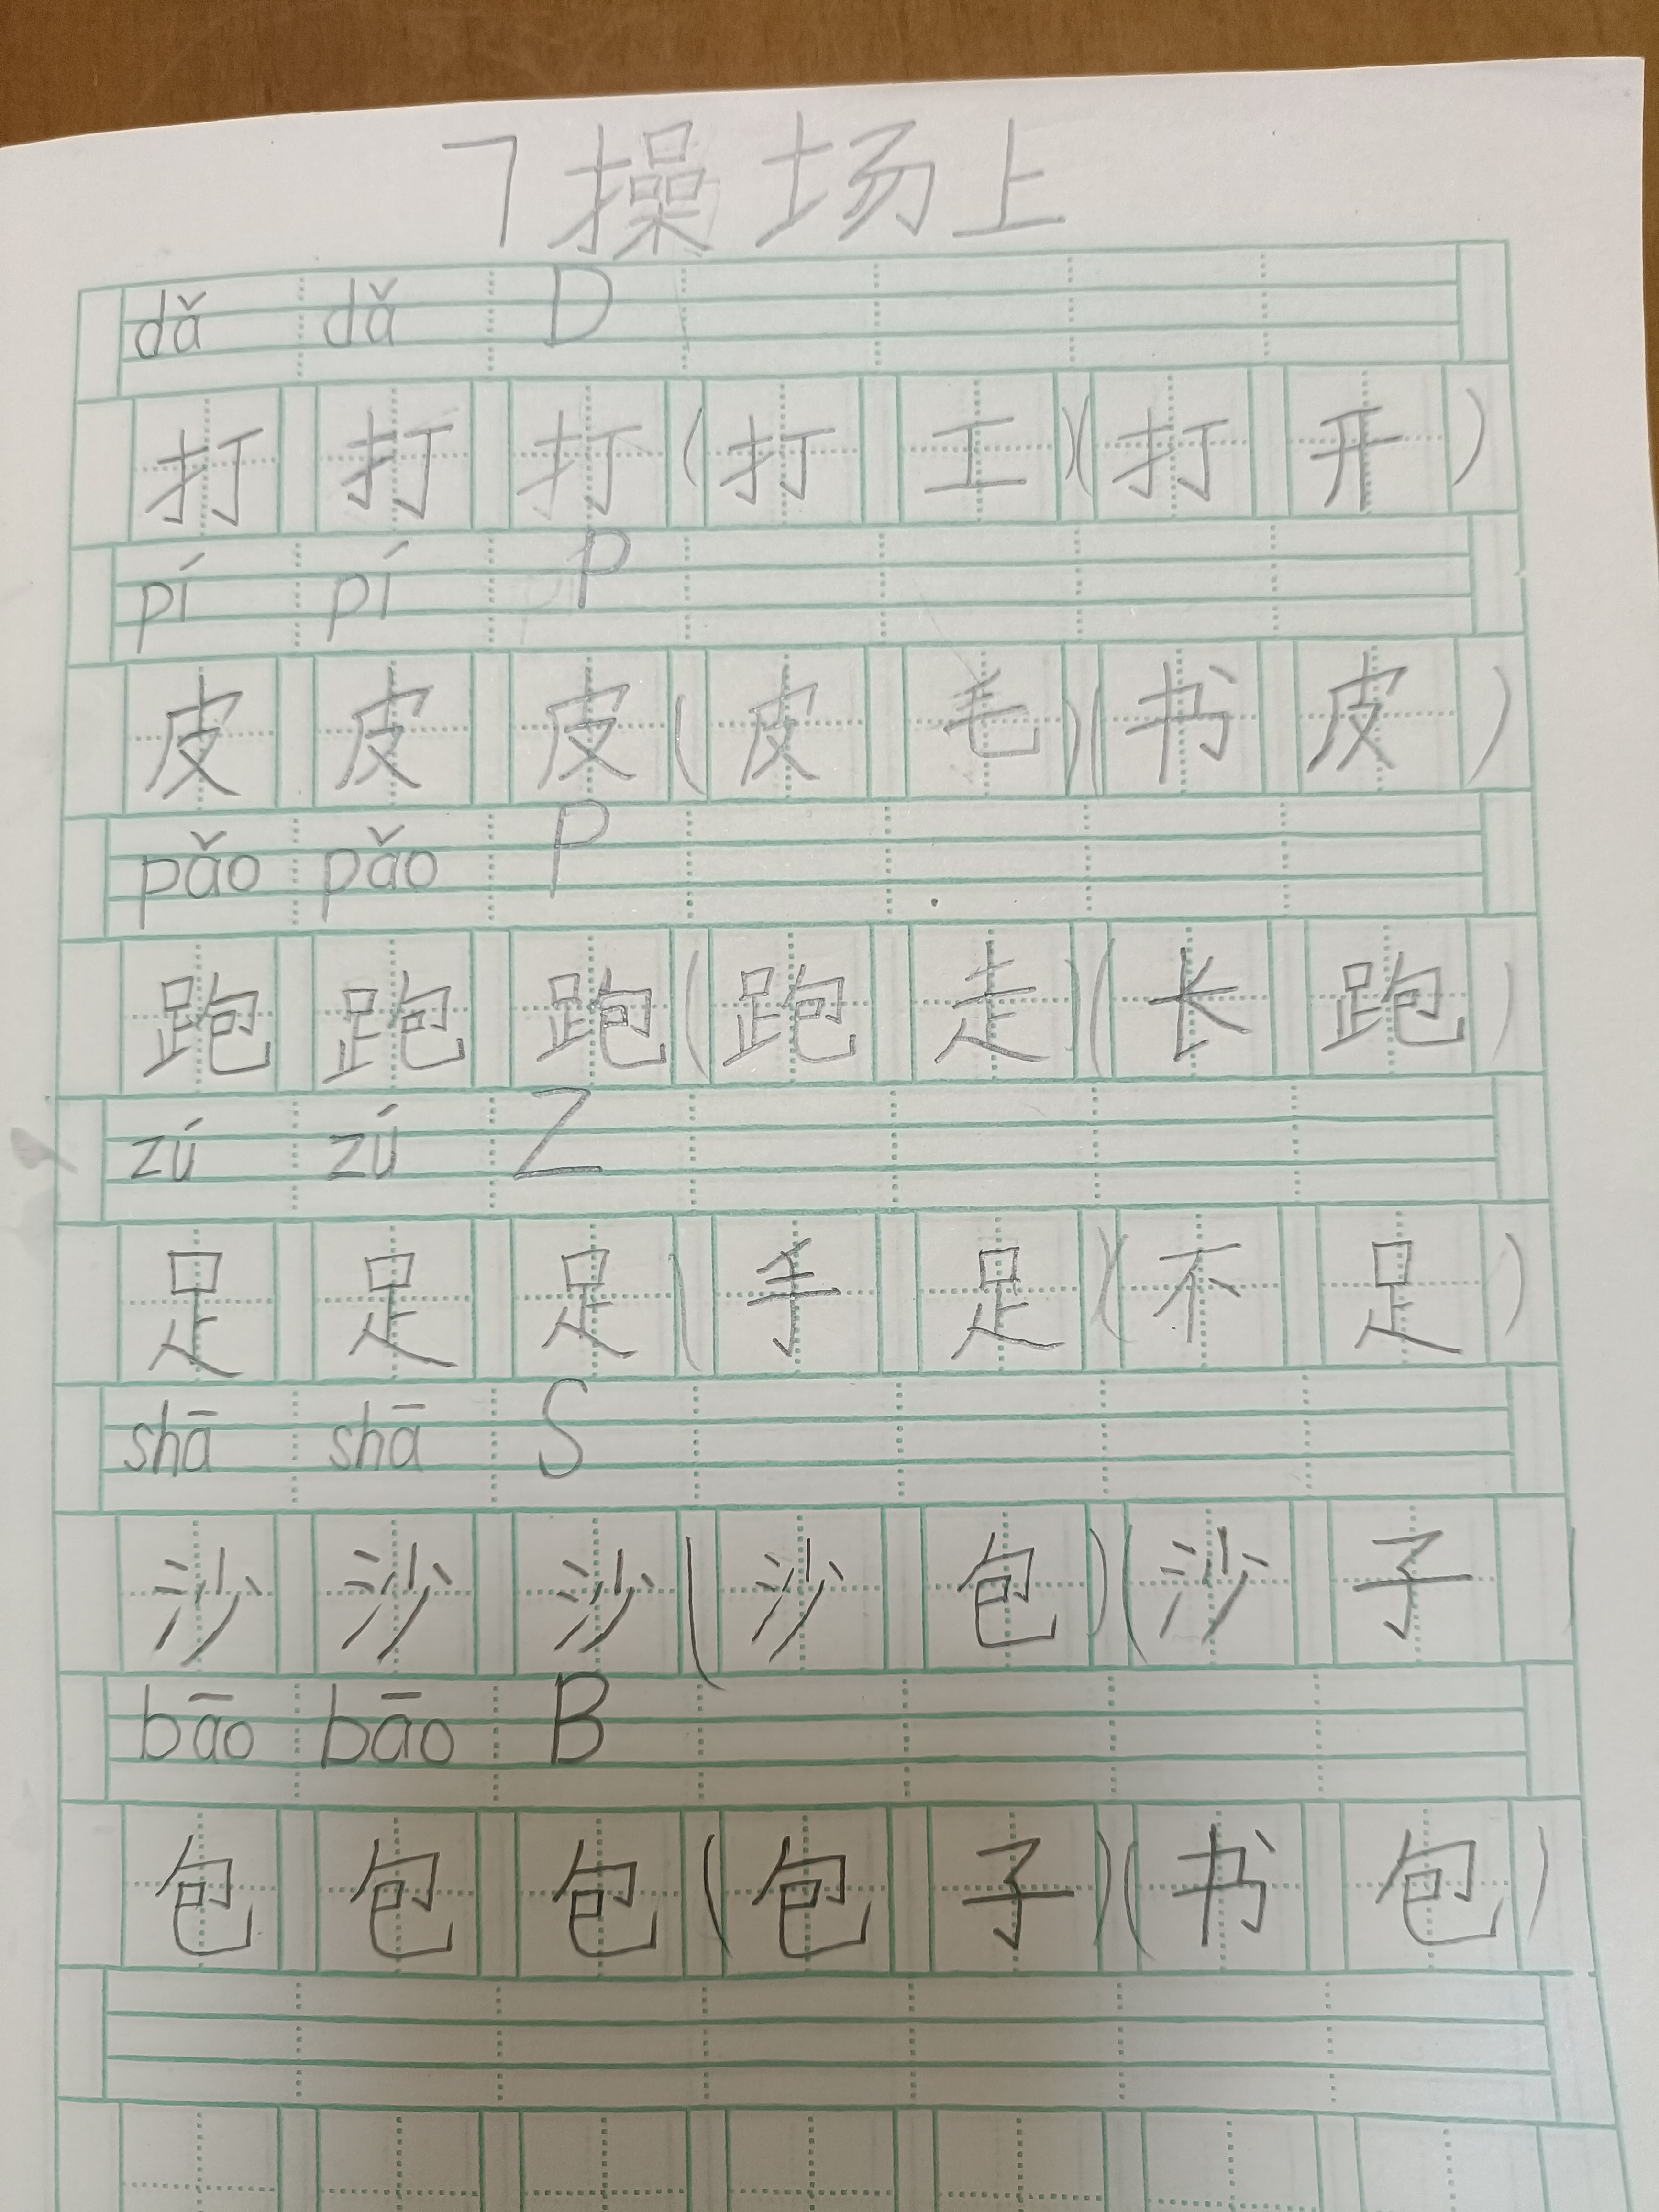 7操场上
dǎ dǎ D
打打打(打工)(打开)
pí pí P
皮皮皮(皮毛)(书皮)
pǎo pǎo P
跑跑跑(跑走)(长跑)
zú zú Z
足足足(手足)(不足)
shā shā S
沙沙沙(沙包)(沙子)
bāo bāo B
包包包(包子)(书包)